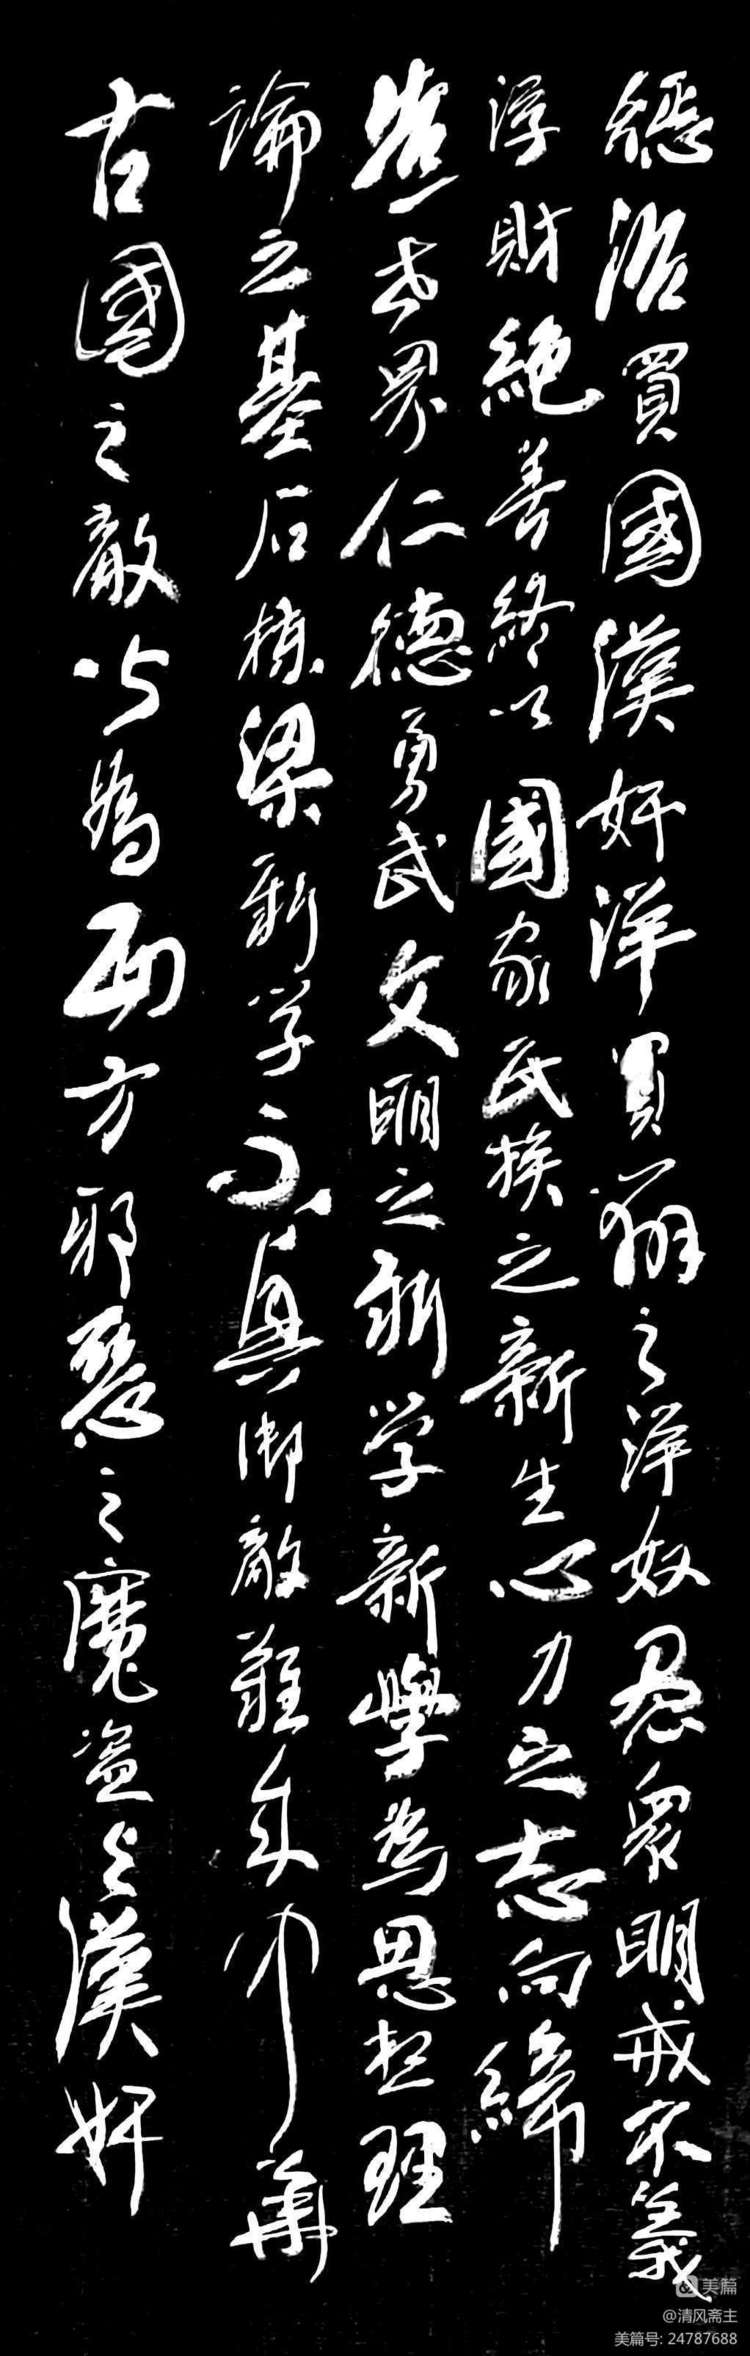 惩治買國漢奸洋買辦之洋奴忍衆明戒不義
浮財絶善終以國家民族之新生心力之志向締
造世界仁德勇武文明之新学新學為思想理
論之基石棟梁新学不真御敵難成中華
古國之敵乃為西方邪惡之魔盗与漢奸
美篇
@清风斋主
美篇号: 24787688